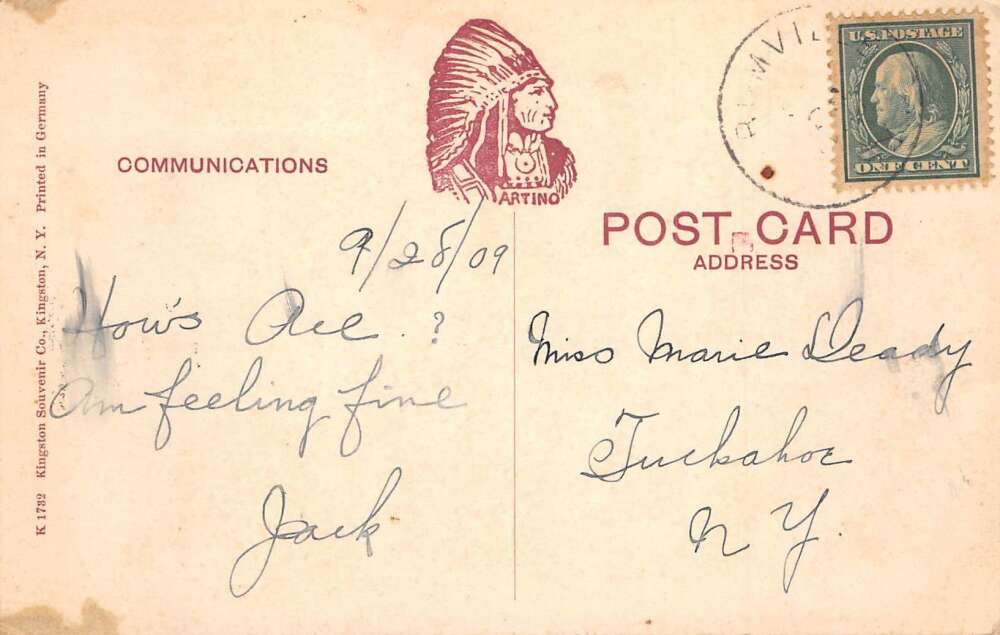 K 1732 Kingston Souvenir Co., Kingston, N. Y. Printed in Germany
COMMUNICATIONS
ARTINO
9/28/09
How's All. ?
Am feeling fine
Jack
U.S. POSTAGE
ONE CENT
POST CARD
ADDRESS
Miss Marie Deady
Tuckahoe
N Y.